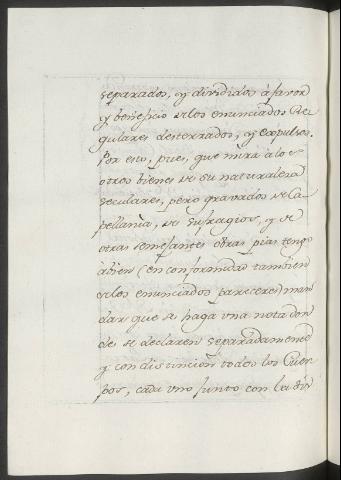 separados, y divididos à favor
y beneficio de los enunciados Re-
gulares desterrados, y expulsos.
Por esto, pues, que mira à los
otros bienes de su naturaleza
seculares, pero gravados de Ca-
pellanìa, de sufragios, y de
otras semejantes obras pias tengo
àbien (en conformidad tambien
de los enunciados pareceres) man
dar que se haga una nota don
de se declaren separadamente
y con distincion todos los Cuer-
pos, cada uno junto con la